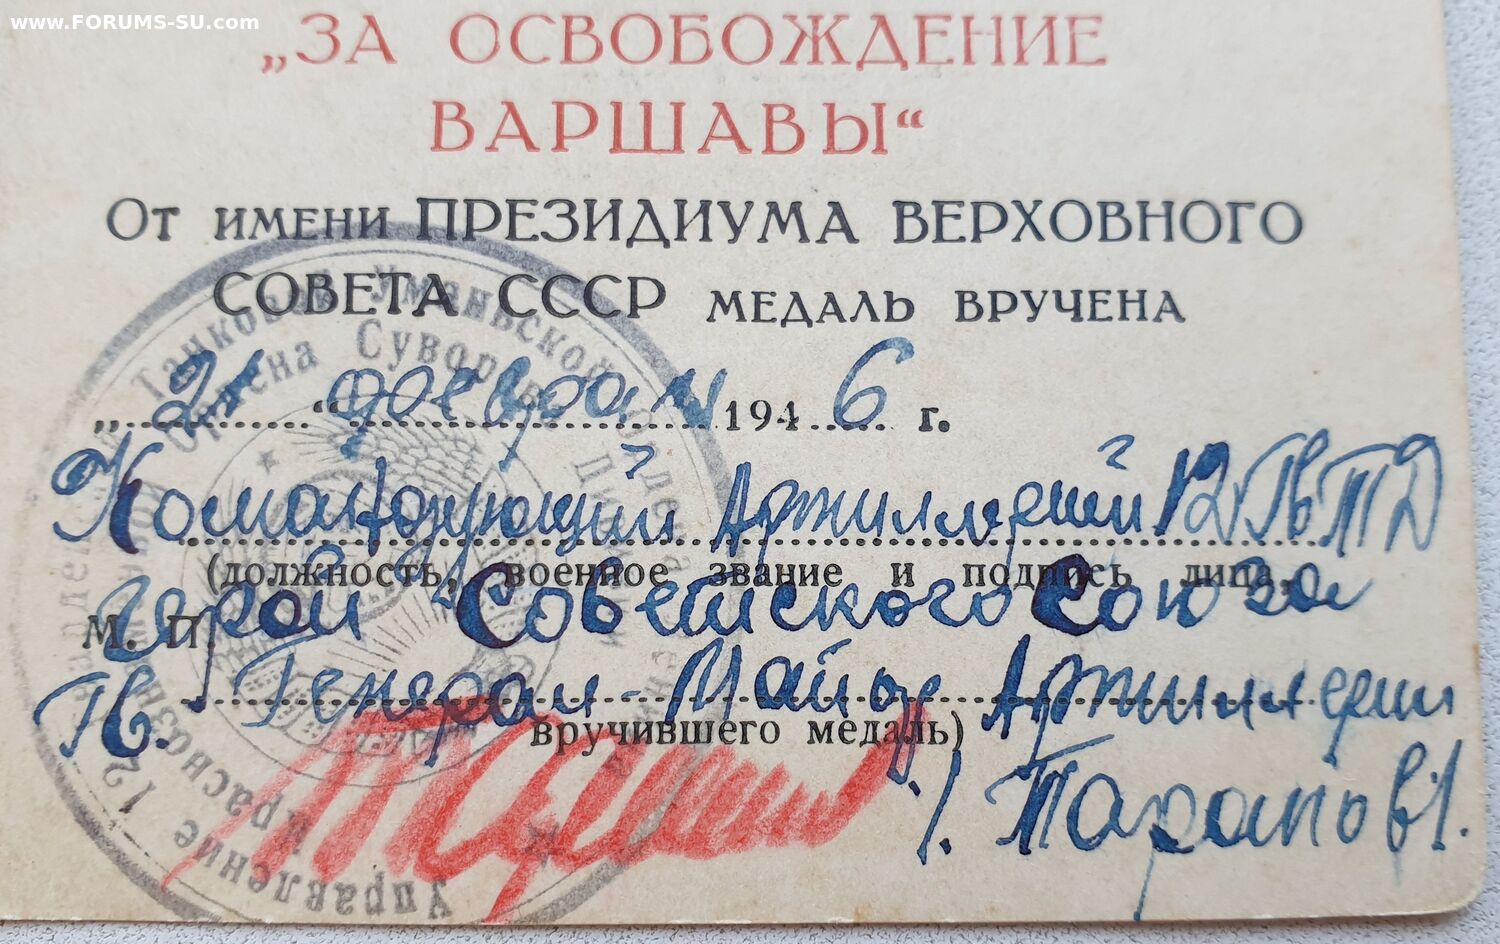 www.FORUMS-SU.com
„ЗА ОСВОБОЖДЕНИЕ
ВАРШАВЫ“
От имени ПРЕЗИДИУМА ВЕРХОВНОГО
СОВЕТА СССР МЕДАЛЬ ВРУЧЕНА
„ “ февраля 1946 г.
Командующий Артиллерией 12 Гв ТД
(должность, военное звание и подпись лица,
Герой Советского Союза
М. П.
Гв. Генерал-Майор Артиллерии
вручившего медаль)
Управление 12 Танковой Уманьской
Краснознаменной Ордена Суворова